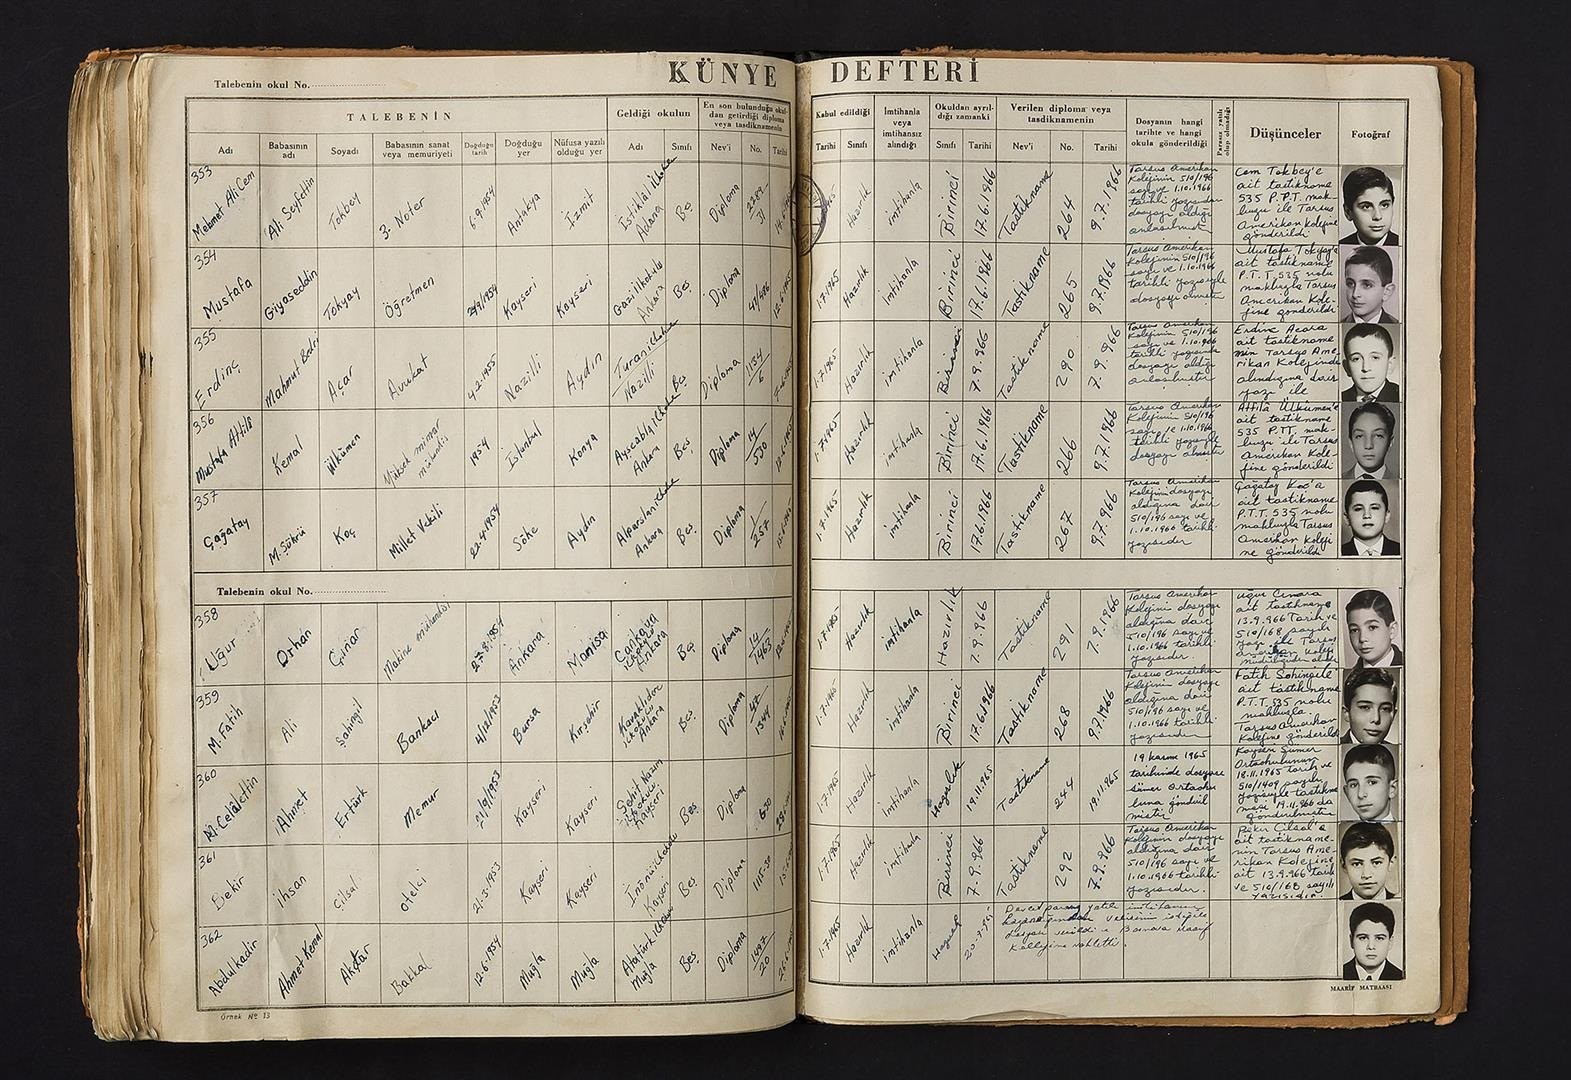 KÜNYE DEFTERİ
Talebenin okul No.
TALEBENİN
Geldiği okulun
En son bulunduğu okul-
dan getirdiği diploma
veya tasdiknamenin
Kabul edildiği
İmtihanla
veya
imtihansız
alındığı
Okuldan ayrıl-
dığı zamanki
Verilen diploma veya
tasdiknamenin
Dosyanın hangi
tarihte ve hangi
okula gönderildiği
Parasız yatılı
olup olmadığı
Düşünceler
Fotoğraf
Adı
Babasının
adı
Soyadı
Babasının sanat
veya memuriyeti
Doğduğu
tarih
Doğduğu
yer
Nüfusa yazılı
olduğu yer
Adı
Sınıfı
Nev'i
No.
Tarihi
Tarihi
Sınıfı
Sınıfı
Tarihi
Nev'i
No.
Tarihi
353
Mehmet Ali Cem
Ali Seyfettin
Tokbey
3. Noter
6-9-1954
Antakya
İzmit
İstiklal ilkokulu
Adana
Beş
Diploma
Hazırlık
imtihanla
Birinci
17.6.1966
Tastikname
264
9.7.1966
Tarsus Amerikan
Kolejinin 510/196
sayı ve 1.10.1966
tarihli yazısından
dosyayı aldığı
anlaşılmıştır
Cem Tokbey'e
ait tastikname
535 P.T.T. mak-
buzu ile Tarsus
Amerikan kolejine
gönderildi
354
Mustafa
Giyaseddin
Tokyay
Öğretmen
Kayseri
Kayseri
Gazi ilkokulu
Ankara
Beş
Diploma
41/486
1-7-1965
Hazırlık
imtihanla
Birinci
17.6.1966
Tastikname
265
9.7.1966
Tarsus Amerikan
Kolejinin 510/196
sayı ve 1.10.1966
tarihli yazısıyle
dosyayı almıştır
Mustafa Tokyay'a
ait tastikname
P.T.T. 535 nolu
makbuzla Tarsus
Amerikan Kole-
jine gönderildi
355
Erdinç
Mahmut Bedri
Açar
Avukat
4-2-1955
Nazilli
Aydın
Turan ilkokulu
Nazilli
Beş
Diploma
1154/6
1-7-1965
Hazırlık
imtihanla
Birinci
7.9.966
Tastikname
290
7.9.966
Tarsus Amerikan
Kolejinin 510/196
sayı ve 1.10.966
tarihli yazısından
dosyayı aldığı
anlaşılmıştır
Erdinç Açara
ait tastikname
nin Tarsus Ame
rikan Kolejinde
alındığına dair
yazı ile
356
Mustafa Attilâ
Kemal
Ülkümen
Yüksek mimar
mühendis
1954
İstanbul
Konya
Ayşeabla ilkokulu
Ankara
Beş
Diploma
14/530
1-7-1965
Hazırlık
imtihanla
Birinci
17.6.1966
Tastikname
266
9.7.1966
Tarsus Amerikan
Kolejinin 510/196
sayı ve 1.10.1966
tarihli yazısıyle
dosyayı almıştır
Attilâ Ülkümen'e
ait tastikname
535 P.T.T. mak-
buzu ile Tarsus
Amerikan Kole-
jine gönderildi
357
Çağatay
M. Şükrü
Koç
Millet Vekili
22-4-1954
Söke
Aydın
Alparslan ilkokulu
Ankara
Beş
Diploma
1/257
1-7-1965
Hazırlık
imtihanla
Birinci
17.6.1966
Tastikname
267
9.7.966
Tarsus Amerikan
Kolejinin dosyayı
aldığına dair
510/196 sayı ve
1.10.1966 tarihli
yazısıdır
Çağatay Koç'a
ait tastikname
P.T.T. 535 nolu
makbuzla Tarsus
Amerikan Koleji
ne gönderildi
Talebenin okul No.
358
Uğur
Orhan
Çınar
Makine mühendisi
27-8-1954
Ankara
Manisa
Çankaya
ilkokulu
Ankara
Beş
Diploma
14/1463
1-7-1965
Hazırlık
imtihanla
Hazırlık
7.9.966
Tastikname
291
7.9.1966
Tarsus Amerikan
Kolejinin dosyayı
aldığına dair
510/196 sayı ve
1.10.1966 tarihli
yazısıdır.
Uğur Çınara
ait tastikname
13.9.966 Tarih ve
510/168 sayılı
yazı ile Tarsus
Amerikan Koleji
359
M. Fatih
Ali
Şahingil
Bankacı
4/12/1953
Bursa
Kırşehir
Kavaklıdere
ilkokulu
Ankara
Beş
Diploma
42/1344
1-7-1965
Hazırlık
imtihanla
Birinci
17.6.1966
Tastikname
268
9.7.1966
Tarsus Amerikan
Kolejinin dosyayı
aldığına dair
510/196 sayı ve
1.10.1966 tarihli
yazısıdır
Fatih Şahingile
ait tastikname
P.T.T. 535 nolu
makbuzla
Tarsus Amerikan
Kolejine gönderildi
360
M. Celâlettin
Ahmet
Ertürk
Memur
21/9/1953
Kayseri
Kayseri
Şehit Nazım
ilkokulu
Kayseri
Beş
Diploma
650
1-7-1965
Hazırlık
imtihanla
Hazırlık
19.11.965
Tastikname
244
19.11.965
19 kasım 1965
tarihinde dosyası
Sümer Ortaoku
luna gönderil
miştir
Kayseri Sümer
Ortaokulunun
18.11.1965 tarih ve
510/1409 sayılı
yazısıyle tastikna
mesi 19.11.966 da
gönderilmiştir
361
Bekir
İhsan
Çilsal
otelci
21-3-1953
Kayseri
Kayseri
İnönü ilkokulu
Kayseri
Beş
Diploma
1115-30
1-7-1965
Hazırlık
imtihanla
Birinci
7.9.966
Tastikname
292
7.9.966
Tarsus Amerikan
Kolejinin dosyayı
aldığına dair
510/196 sayı ve
1.10.1966 tarihli
yazısıdır.
Bekir Çilsal'a
ait tastikname-
nin Tarsus Ame-
rikan Kolejine
ait 13.9.966 tarih
ve 510/168 sayılı
yazısıdır.
362
Abdulkadir
Ahmet Kemal
Akçtar
Bakkal
12-6-1954
Muğla
Muğla
Atatürk ilkokulu
Muğla
Beş
Diploma
1497/20
1-7-1965
Hazırlık
imtihanla
Hazırlık
Devlet parasız yatılı imtihanını
kazandığından velisinin isteğile
dosyası verildi ve Bornova Maarif
Kollejine nakletti.
Örnek No 13
MAARİF MATBAASI